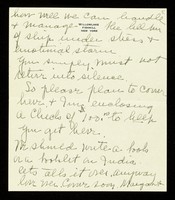 how well we can handle
& manage
of ship under stress &
emotional storm
You simply must not
return into silence.
So please plan to come
here & I'm enclosing
a check of $100.00 to help
you get here.
We should write a book
or a booklet on India
let's talk it over anyway
love
soon Margaret